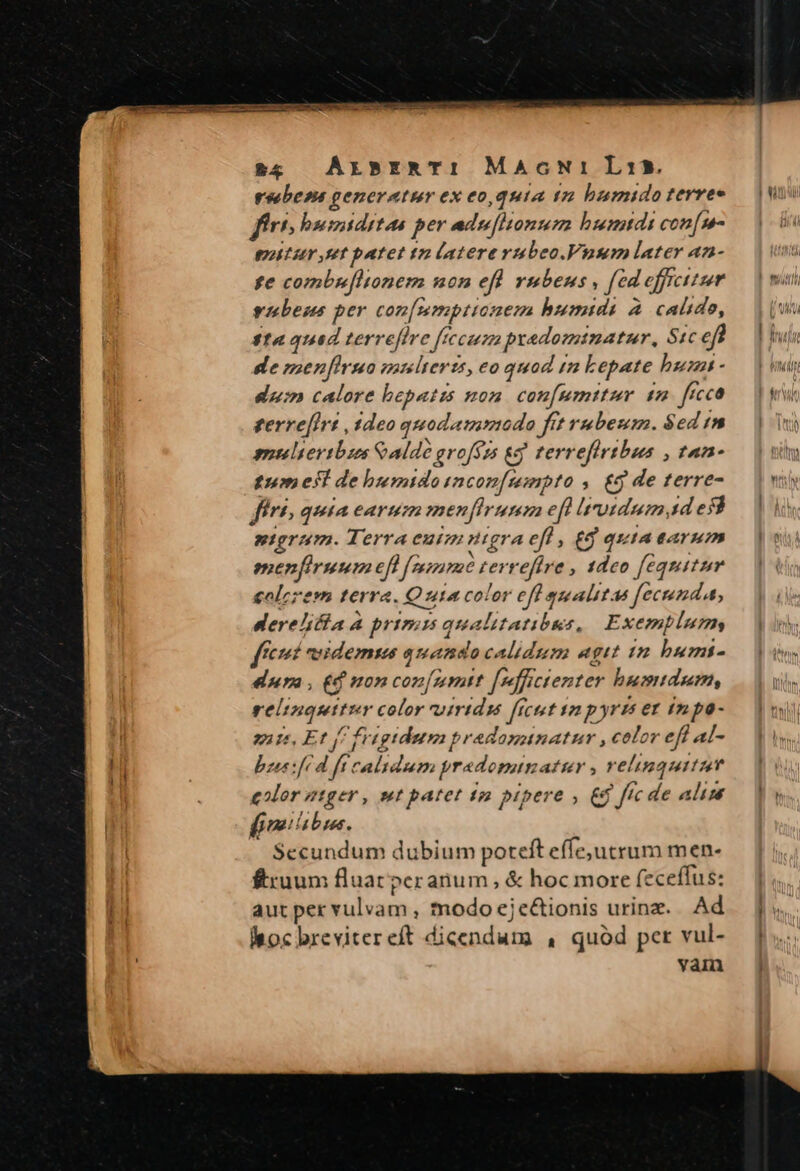 84 ALBERTI MAGNI LIB.
rubens generatur ex eo, quia in humido terre-
stri, humiditas per adustionum humidi consu-
mitur, ut patet in latere rubeo. Vnum later an-
te combustionem non est rubeus, sed efficitur
rubeus per consumptionem humidi à calido,
ita quod terrestre siccum prædominatur, Sic est
de menstruo mulieris, eo quod in hepate humi-
dum calore hepatis non consumitur in sicco
terrestri, ideo quodammodo fit rubeum. Sed in
mulieribus valdè grossis & terrestribus, tan-
tum est de humido inconsumpto, & de terre-
stri, quia earum menstruum est lividum, id est
nigrum. Terra enim nigra est, & quia earum
menstruum est summè terrestre, ideo sequitur
colorem terra. Quia color est qualitas secunda,
derelicta à primis qualitatibus. Exemplum,
sicut videmus quando calidum agit in humi-
dum, & non consumit sufficienter humidum,
relinquitur color viridis sicut in pyris et in po-
mis. Et si frigidum prædominatur, color est al-
bus: sed si calidum prædominatur, relinquitur
color niger, ut patet in pipere, & sic de aliis
similibus.
Secundum dubium potest esse, utrum men-
struum fluat per anum, & hoc more secessus:
aut per vulvam, modo ejectionis urinæ. Ad
hoc breviter est dicendum, quòd per vul-
vam